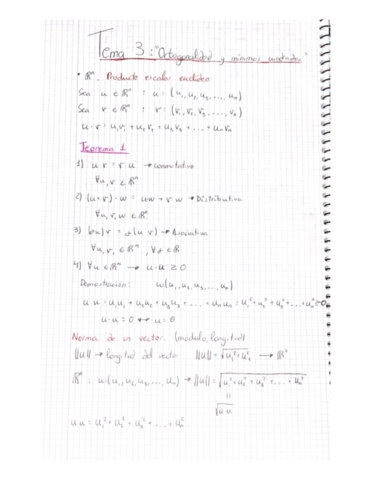 Tema 3: "Ortogonalidad y mínimos cuadrados"
• ℝⁿ. Producto escalar euclídeo
Sea u ∈ ℝⁿ : u = (u₁, u₂, u₃, ..., uₙ)
Sea v ∈ ℝⁿ : v = (v₁, v₂, v₃, ..., vₙ)
u · v = u₁v₁ + u₂v₂ + u₃v₃ + ... + uₙvₙ
Teorema 1
1) u · v = v · u → Conmutativa
∀u, v ∈ ℝⁿ
2) (u+v) · w = u·w + v·w → Distributiva
∀u, v, w ∈ ℝⁿ
3) (αu) v = α(u·v) → Asociativa
∀u, v, ∈ ℝⁿ, ∀α ∈ ℝ
4) ∀u ∈ ℝⁿ → u·u ≥ 0
Demostración: u(u₁, u₂, u₃, ..., uₙ)
u·u = u₁u₁ + u₂u₂ + u₃u₃ + ... + uₙuₙ = u₁² + u₂² + u₃² + ... + uₙ² ≥ 0
u·u = 0 ↔ u = θ
Norma de un vector. (módulo, longitud)
||u|| → longitud del vector ||u|| = √u₁² + u₂² → ℝ²
ℝⁿ : u(u₁, u₂, u₃, ..., uₙ) → ||u|| = √u₁² + u₂² + u₃² + ... + uₙ²
=
√u·u
u·u = u₁² + u₂² + u₃² + ... + uₙ²